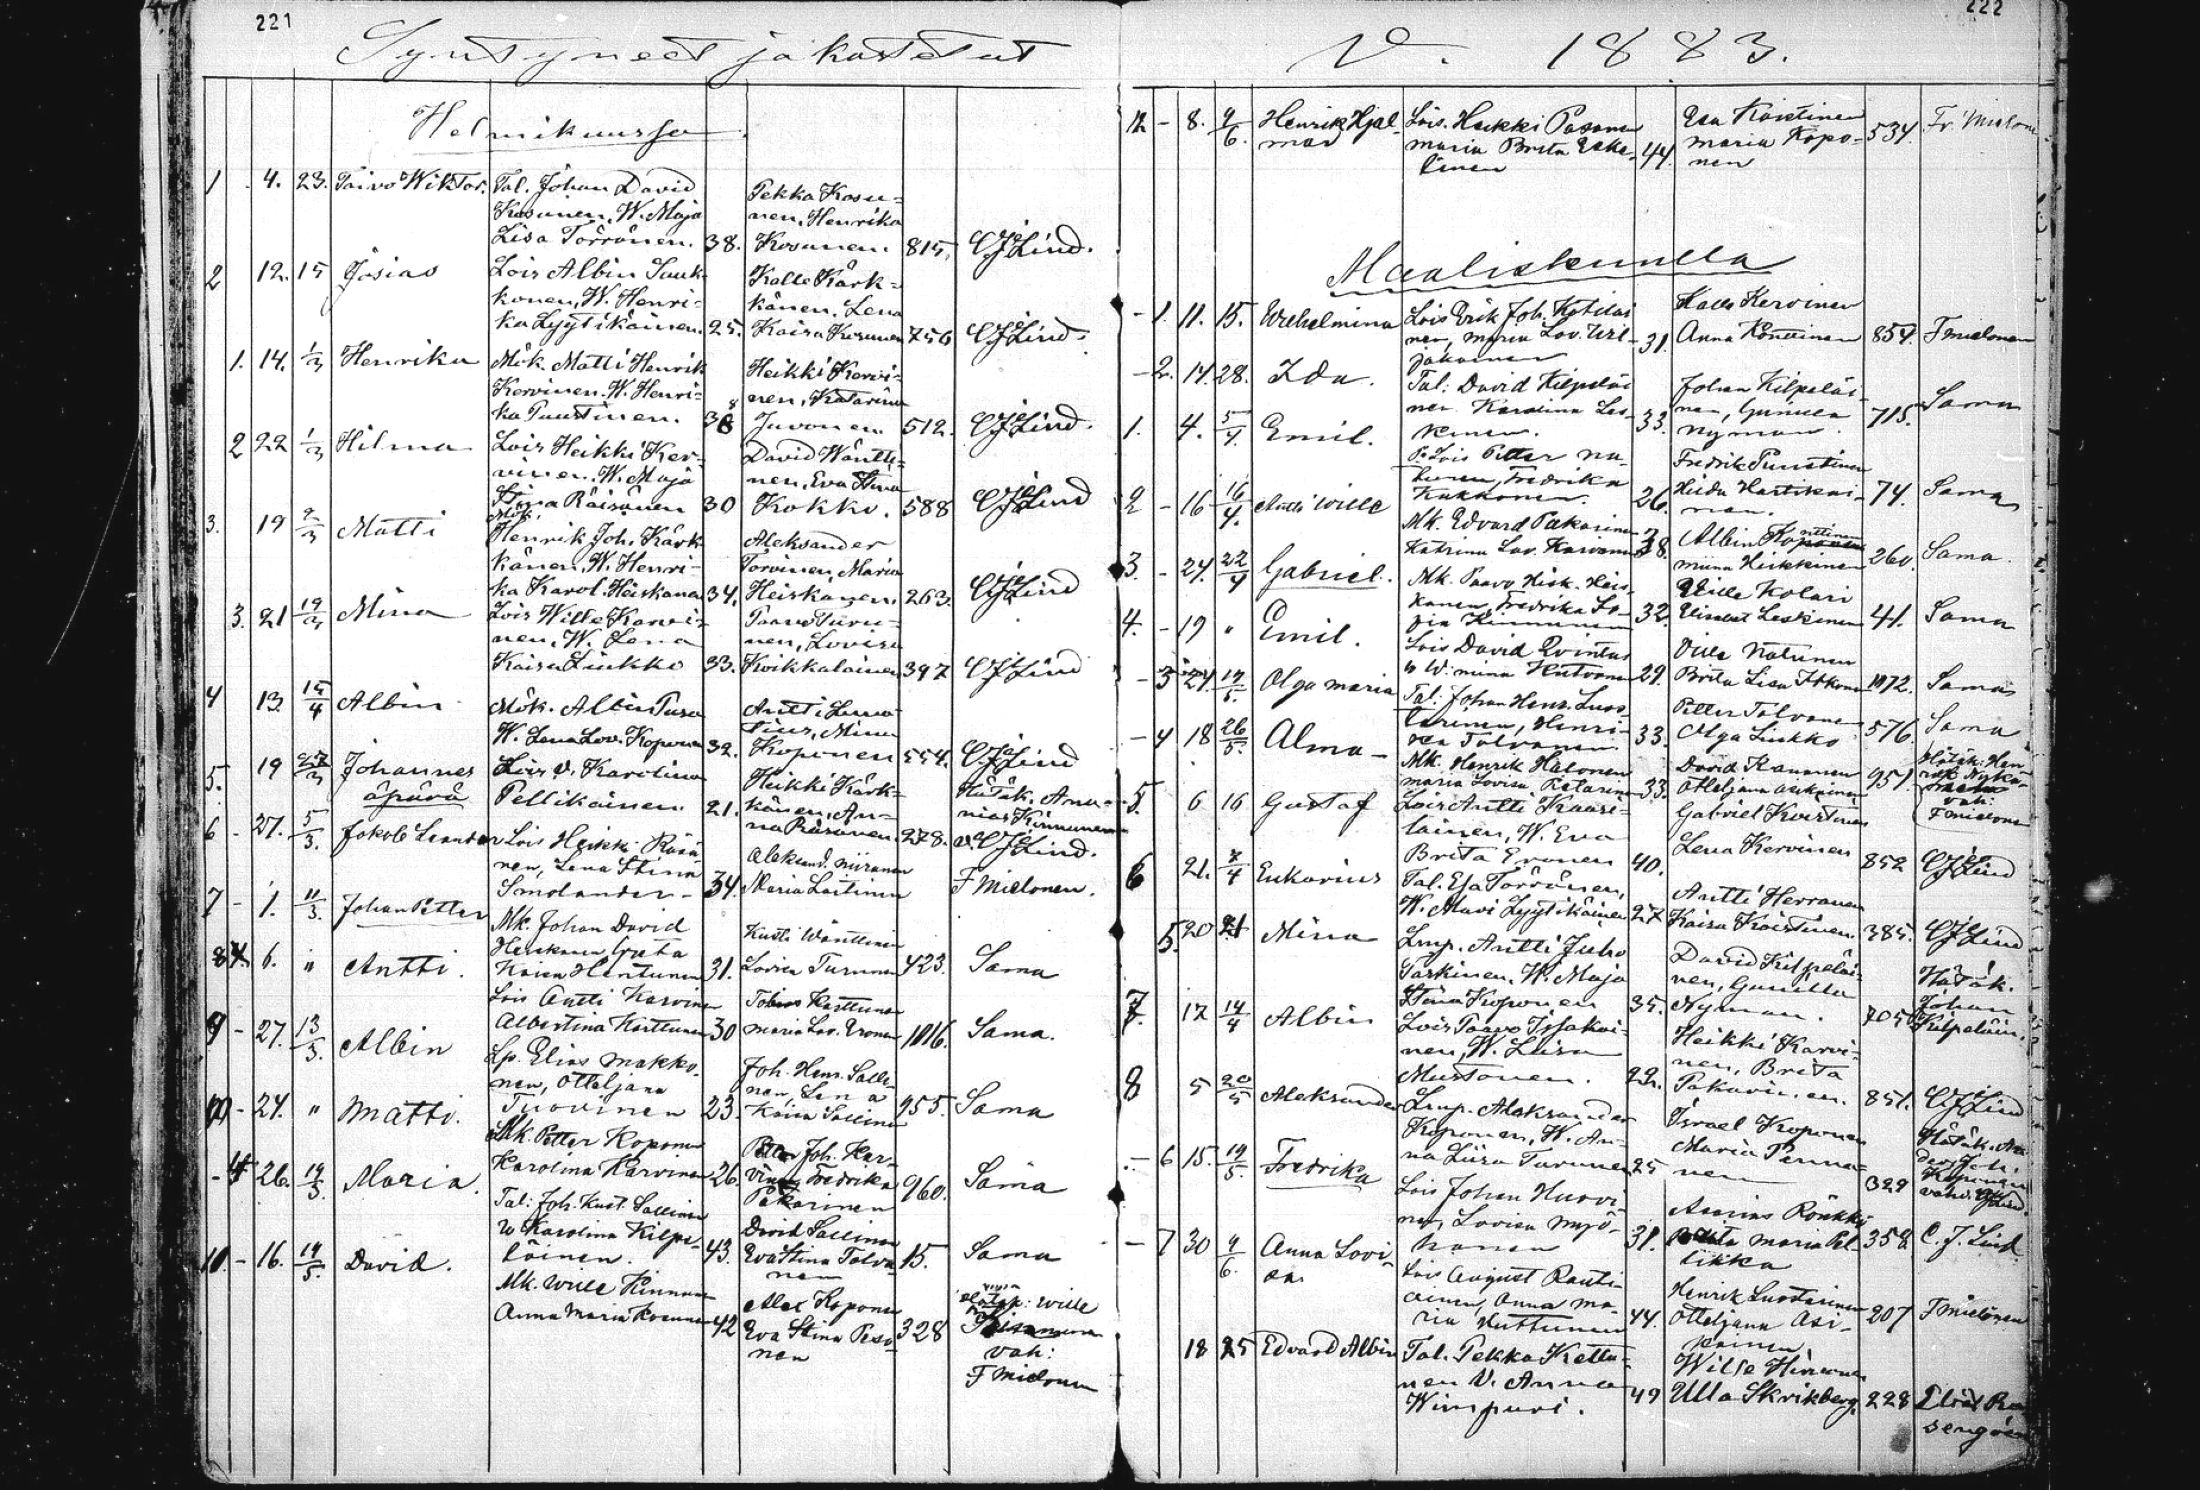 221
Syntyneet ja kastetut
Helmikuussa
1 4. 23. Toivo Wiktor. Tal. Johan David
Kosunen, W. Maja
Liisa Törrönen. 38.
Pekka Kosu-
nen, Henrika
Kosunen 815. CJLind.
2 12. 15 Josias Lois Albin Sauk-
konen, W. Henri-
ka Lyytikäinen. 25.
Kalle Kärk-
känen, Lena
Kaisa Kosunen 756 CJLind.
1. 14. 1/3 Henrika Mök. Matti Henrik
Kervinen. W. Henri-
ka Puustinen. 38
Heikki Kervi-
nen, Katarina
Juvonen 512. CJLind.
2 22 1/3 Hilma Lois Heikki Ker-
vinen. W. Maja
Stina Räisänen 30
David Wäntti-
nen, Eva Stina
Kokko. 588 CJLind
3. 19 2/3 Matti Mök.
Henrik Joh. Kärk-
känen, W. Henri-
ka Karol. Heiskanen 34.
Aleksander
Törvinen, Maria
Heiskanen. 263. CJLind
3. 21 19/3 Mina Lois Wille Karvi-
nen, W. Lena
Kaisa Linkko 33.
Paavo Turu-
nen, Lovisa
Koikkalainen 397 CJLind
4 13. 15/4 Albin Mök. Albin Pusa
W. Lena Lov. Koponen 32.
Antti
Mina
Koponen 554. CJLind
5. 19 Johannes
äpärä
Karolina
Pellikäinen 21.
Heikki Kärk-
känen, An-
na Räsänen 278.
Hätäk. Ana-
nias Kinnunen
CJLind.
6 - 27. 5/3. Jakob Leander Lois Heikki Räsä-
nen, Lena Stina
Smolander - 34.
Aleksand. Miiranen
Maria Laitinen F Mielonen.
7 - 1. 11/3. Johan Petter Mk. Johan David
Heiskanen Greta
Kaisa Hentunen 31.
Kusti Wänttinen
Lovisa Turunen 423. Sama
8 6. " Antti. Lois Antti Karvinen
Albertina Karttunen 30
Tobias Karttunen
Maria Lov. Eronen 1016. Sama.
9 - 27. 13/3. Albin Lp. Elias Makko-
nen, Otteljana
Tuovinen 23.
Joh. Henr. Salli-
nen, Lena
Kaisa Sallinen 955. Sama
10 - 24. " Matti. Mk. Petter Koponen
Karolina Karvinen 26.
Petter Joh. Kar-
vinen Fredrika
Pakarinen 960. Sama
- 4 26. 19/3. Maria. Tal. Joh. Kust. Sallinen
W Karolina Kilpe-
läinen. 43.
David Sallinen
Eva Stina Tolva-
nen 15. Sama
11. - 16. 14/5. David. Mk. Wille Kinnunen
Anna Maria Kosunen 42
Alex Koponen
Eva Stina Peso-
nen 328
Hätäk: Wille
vah:
F Mielonen
222
V. 1883.
12 - 8. 9/6. Henrik Hjal-
mar
Lois. Heikki Pasanen
Maria Brita Eske-
linen 44.
Esa Koistinen
Maria Kopo-
nen 534. Fr. Mielonen
Maaliskuulla
- 1. 11. 15. Wilhelmina Lois Erik Joh. Kotilai
nen, Maria Lov. 31.
Kalle Kervinen
Anna Könttinen 854. F Mielonen
- 2. 14. 28. Ida. Tal: David Kilpeläi
nen Karolina Les-
kinen. 33.
Johan Kilpeläi-
nen, Gunilla
Nyman. 715. Sama
1. 4. 5/4. Emil. Lois Petter
Fredrika
Kukkonen. 26.
Fredrik Puustinen
Hilda Hartikai-
nen. 74. Sama
2 - 16 16/4. Antti Wille Mk. Edvard Pakarinen
Katrina Lov. Karvonen 38.
Albin Könttinen
Heikkinen 260. Sama.
3. - 24. 22/4 Gabriel. Mk. Paavo Heik. Heis-
kanen, Fredrika So-
fia Kinnunen 32.
Wille Kolari
Elisabet Leskinen 41. Sama
4. - 19 " Emil. Lois David Qvintus
W. mina Hutvonen 29.
Ville Natunen
Brita Lisa Itkonen 1072. Sama
- 3 27. 14/5. Olga Maria Tal: Johan Henr. Luos-
tarinen, Henri-
ka Tolvanen 33.
Petter Tolvanen
Olga Linkko 576. Sama
- 4 18 26/5. Alma - Mk. Henrik Halonen
Maria Lovisa Katarina 33.
David Kananen
Otteljana Asikainen 951.
Hätäk: Hen-
vah:
F Mielonen
5. 6 16 Gustaf Lois Antti Kaari-
lainen, W. Eva
Brita Eronen 40.
Gabriel Koistinen
Lena Kervinen 852 CJLind
6 21. 7/4 Eukarius Tal. Esa Törrönen,
W. Mari Lyytikäinen 27
Antti Herranen
Kaisa Koistinen. 385. CJLind
5. 20 21 Mina Lmp. Antti Juho
Tarkinen, W. Maja
Stina Koponen 35.
David Kilpeläi-
nen, Gunilla
Nyman. 705
Hätäk.
Johan
Kilpeläin.
7. 12 14/4 Albin Lois Paavo Issakai-
nen, W. Liisa
Mustonen. 22.
Heikki Karvi-
nen, Brita
Pakarin.en. 851. CJLind
8 5 20/5 Aleksander Lmp. Aleksander
Koponen, W. An-
na Liisa Turunen 25
Israel Koponen
Maria Panna-
nen 329
Hätäk. An
ders Joh.
Koponen
vahv. CJLind.
- 6 15. 19/5. Fredrika Lois Johan Huovi-
nen, Lovisa Myö-
hänen 31.
Asarias Rönkkö
Brita Maria Pel-
likka 358 C. J. Lind
- 7 30 9/6. Anna Lovi-
sa
Lois August Rauti-
ainen, Anna Ma-
ria Huttunen 44.
Henrik Luostarinen
Otteljana Asi-
kainen 207 F Mielonen
18 25 Edvard Albin Tal. Pekka Kettu-
nen V. Anna
Wimpari. 49
Wille Hirvonen
Ulla Skrikberg. 228